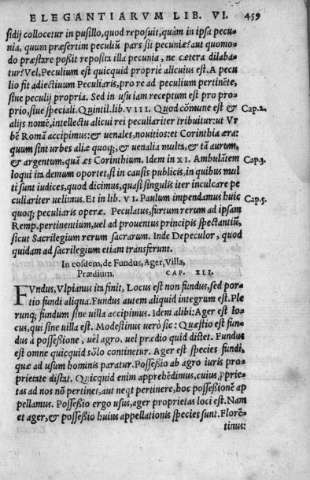 ELEGANTIARVM LIB. VI. 459
sidij collocetur in pusillo, quod reposuit, quàm in ipsa pecu
nia, quum præsertim peculiū pars sit pecuniæ: aut quomo
do præstare possit reposita illa pecunia, ne cætera dilaba-
tur? Vel, Peculium est quicquid proprie alicuius est. A pecu
lio fit adiectiuum Peculiaris, pro re ad peculium pertinēte,
siue peculij propria. Sed in usu iam receptum est pro pro-
prio, siue speciali. Quintil. lib. VIII. Quod cōmune est & Cap. 2.
alijs nomē, intellectu alicui rei peculiariter tribuitur: ut Vr
bē Romā accipimus: & uenales, nouitios: et Corinthia æra:
quum sint urbes aliæ quoq;, & uenalia multa, & tā aurum,
& argentum, quā æs Corinthium. Idem in XI. Ambulātem Cap. 3.
loqui in demum oportet, si in causis publicis, in quibus mul
ti sunt iudices, quod dicimus, quasi singulis iter inculcare pe
culiariter uelimus. Et in lib. VI. Paulum impendamus huic Cap. 5.
quoq; peculiaris operæ. Peculatus, furtum rerum ad ipsam
Remp. pertinentium, uel ad prouentus principis spectantiū,
sicut Sacrilegium rerum sacrarum. Inde Depeculor, quod
quidam ad sacrilegium etiam transferunt.
In eosdem, de Fundus, Ager, Villa,
Prædium. CAP. XLI.
FVndus, Vlpianus in finit, Locus est non fundus, sed por
tio fundi aliqua. Fundus autem aliquid integrum est. Ple
runq; fundum sine uilla accipimus. Idem alibi: Ager est lo-
cus, qui sine uilla est. Modestinus uerò sic: Quæstio est fun-
dus a possessione, uel agro, uel prædio quid distet. Fundus
est omne quicquid solo continetur. Ager est species fundi,
quæ ad usum hominis paratur. Possessio ab agro iuris pro-
prietate distat. Quicquid enim apprehēdimus, cuius, pprie-
tas ad nos nō pertinet, aut neqt pertinere, hoc possessionē ap
pellamus. Possessio ergo usus, ager proprietas loci est. Nam
et ager, & possessio huius appellationis species sunt. Florē-
tinus: